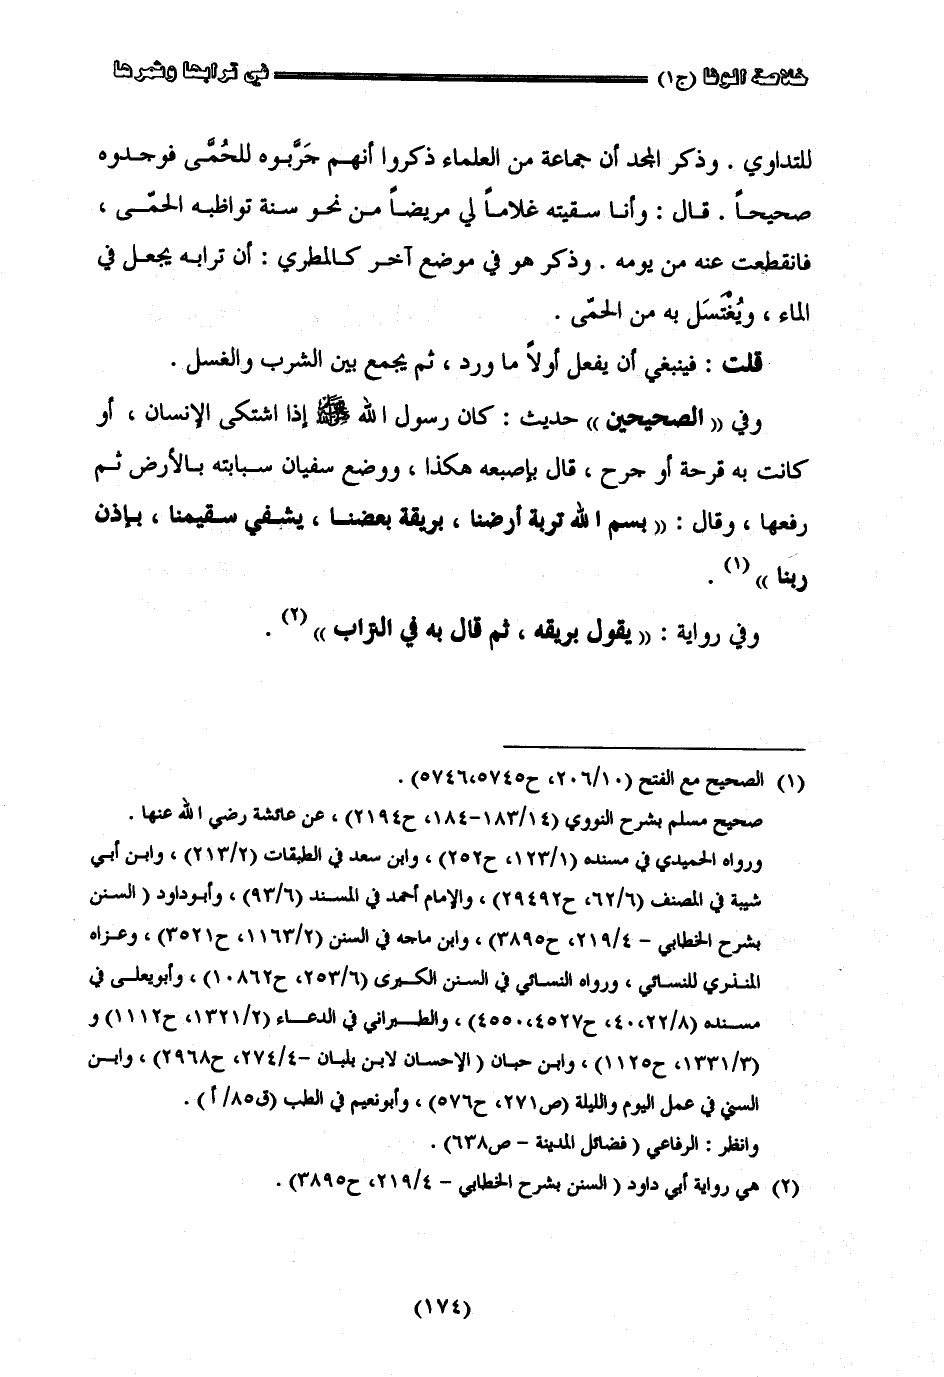 خلاصة الوفا (ج١) في ترابها وثمرها
للتداوي . وذكر المجد أن جماعة من العلماء ذكروا أنهم جَرَّبوه للحُمَّى فوجدوه
صحيحاً . قال : وأنا سقيته غلاماً لي مريضاً من نحو سنة تواظبه الحمّى ،
فانقطعت عنه من يومه . وذكر هو في موضع آخر كالمطري : أن ترابه يجعل في
الماء ، ويُغْتَسَل به من الحمّى .
قلت : فينبغي أن يفعل أولاً ما ورد ، ثم يجمع بين الشرب والغسل .
وفي « الصحيحين » حديث : كان رسول الله ﷺ إذا اشتكى الإنسان ، أو
كانت به قرحة أو جرح ، قال بإصبعه هكذا ، ووضع سفيان سبابته بالأرض ثم
رفعها ، وقال : « بسم الله تربة أرضنا ، بريقة بعضنا ، يشفي سقيمنا ، بإذن
ربنا » (١) .
وفي رواية : « يقول بريقه ، ثم قال به في التراب » (٢) .
(١) الصحيح مع الفتح (٢٠٦/١٠، ح٥٧٤٥،٥٧٤٦) .
صحيح مسلم بشرح النووي (١٨٣/١٤-١٨٤، ح٢١٩٤) ، عن عائشة رضي الله عنها .
ورواه الحميدي في مسنده (١٢٣/١، ح٢٥٢) ، وابن سعد في الطبقات (٢١٣/٢) ، وابن أبي
شيبة في المصنف (٦٢/٦، ح٢٩٤٩٢) ، والإمام أحمد في المسند (٩٣/٦) ، وأبوداود ( السنن
بشرح الخطابي - ٢١٩/٤، ح٣٨٩٥) ، وابن ماجه في السنن (١١٦٣/٢، ح٣٥٢١) ، وعزاه
المنذري للنسائي ، ورواه النسائي في السنن الكبرى (٢٥٣/٦، ح١٠٨٦٢) ، وأبويعلى في
مسنده (٤٠،٢٢/٨، ح٤٥٥٠،٤٥٢٧) ، والطبراني في الدعاء (١٣٢١/٢، ح١١١٢) و
(١٣٣١/٣، ح١١٢٥) ، وابن حبان ( الإحسان لابن بلبان -٢٧٤/٤، ح٢٩٦٨) ، وابن
السني في عمل اليوم والليلة (ص٢٧١، ح٥٧٦) ، وأبونعيم في الطب (ق٨٥/ أ ) .
وانظر : الرفاعي ( فضائل المدينة - ص٦٣٨) .
(٢) هي رواية أبي داود ( السنن بشرح الخطابي - ٢١٩/٤، ح٣٨٩٥) .
(١٧٤)